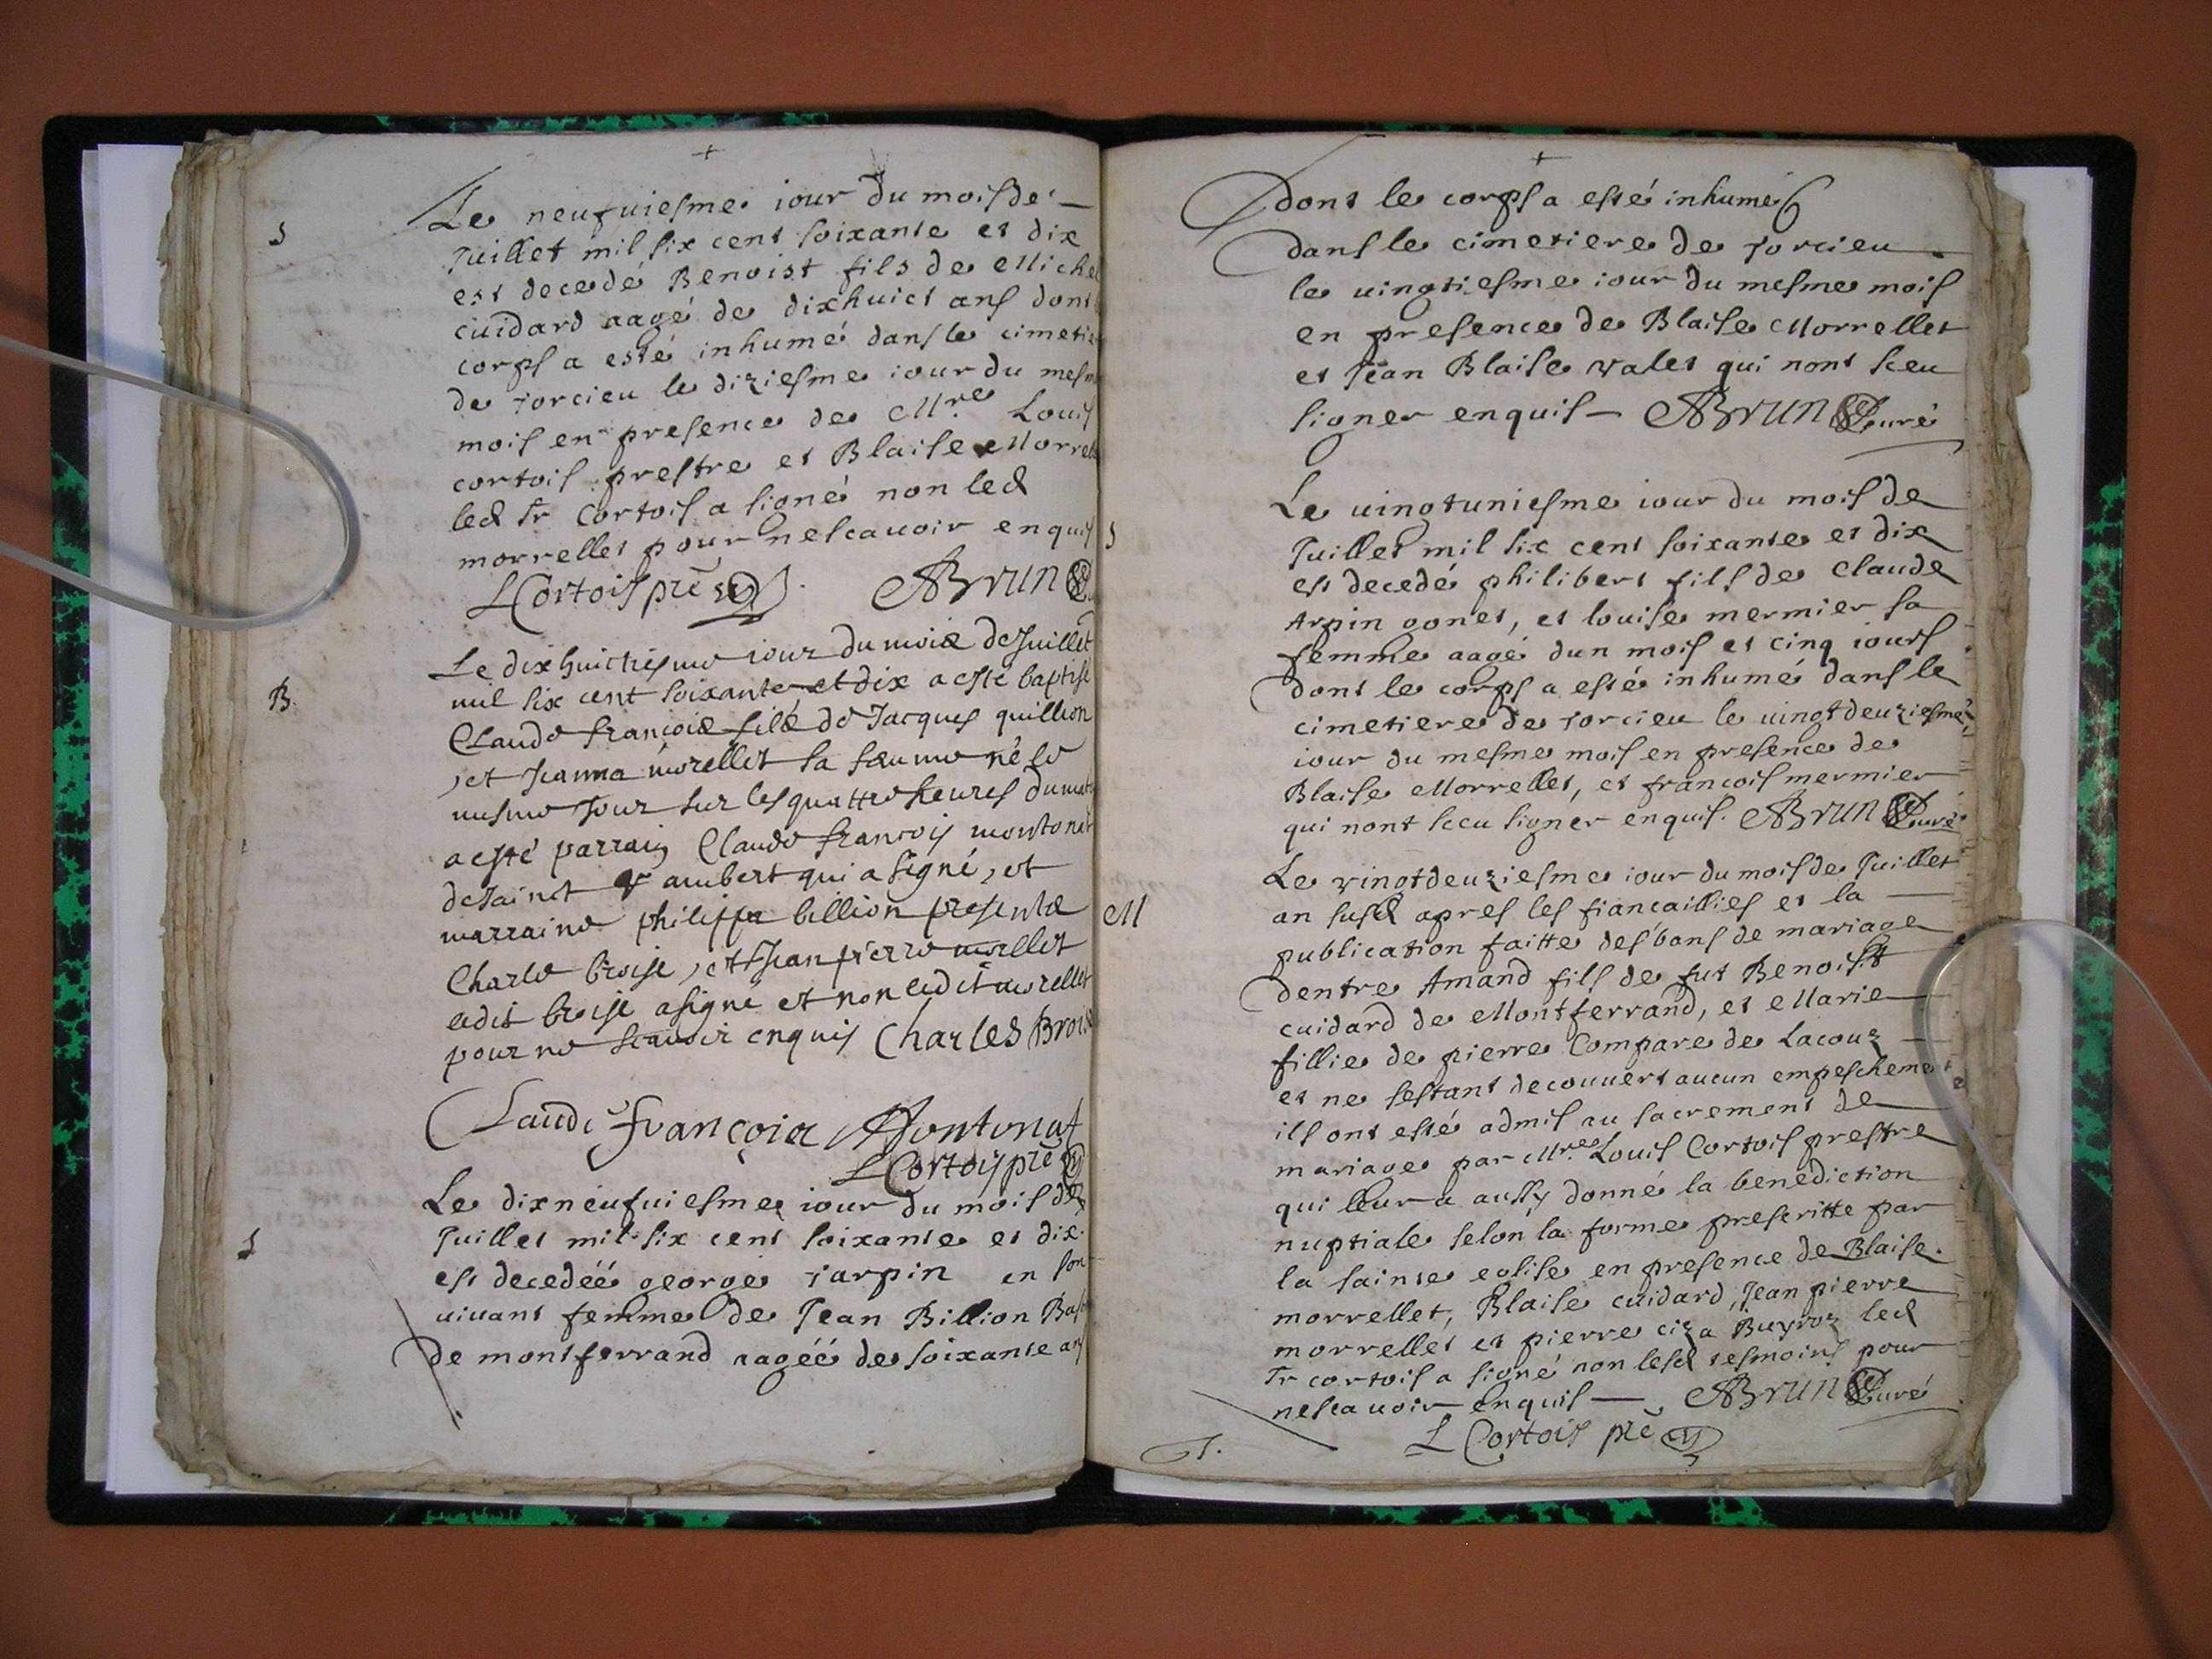 +
S
Le neufuiesme iour du mois de
Juillet mil six cent soixante et dix
est decedé Benoist fils de Michel
cuidard aagé de dixhuict ans dont
corps a esté inhumé dans le cimeti
de torcieu le diziesme iour du mesm
mois en presence de Mre Louis
cortois prestre et Blaise Morrel
led Sr Cortois a signé non led
morrellet pour ne scauoir enquis
L Cortois pre ABrun
B.
Le dix huictiesme iour du mois de Juillet
mil six cent soixante et dix a esté baptisé
Claude françois filz de Jacques quillion
et Jeanna morellet sa femme né le
mesme Jour sur les quattre heures du mat
a esté parrain Claude françois montonat
de sainct rambert qui a signé, et
marraine philippa billion presents
Charle broise, et Jean pierre morellet
ledit broise a signé et non ledit morellet
pour ne scauoir enquis Charles Brois
Claude françois Montonat
L Cortois pre
S
Le dixneufuiesme iour du mois de
Juillet mil six cent soixante et dix
est decedéé george tarpin en son
uiuant femme de Jean Billion Bas
de montferrand aagéé de soixante ans
+
dont le corps a esté inhumé
dans le cimetiere de torcieu
le uingtiesme iour du mesme mois
en presence de Blaise Morrellet
et Jean Blaise valet qui nont sceu
signer enquis ABrun Curé
S
Le uingtuniesme iour du mois de
Juillet mil six cent soixante et dix
est decedé philibert fils de Claude
Arpin gonet, et louise mermier sa
femme aagé dun mois et cinq iours
dont le corps a esté inhumé dans le
cimetiere de torcieu le uingtdeuziesme
iour du mesme mois en presence de
Blaise Morrellet, et francois mermier
qui nont sceu signer enquis. ABrun Curé
M
Le vingtdeuziesme iour du mois de Juillet
an susd apres les fiancaillies et la
publication faitte des bans de mariage
dentre Amand fils de fut Benoist
cuidard de Montferrand, et Marie
fillie de pierre Compare de Lacouz
et ne sestant decouuert aucun empeschement
ils ont esté admis au sacrement de
mariage par Mre Louis Cortois prestre
qui leur a aussy donné la benediction
nuptiale selon la forme prescritte par
la sainte eglise en presence de Blaise
morrellet, Blaise cuidard, Jean pierre
morrellet et pierre ciza Buyroz led
Sr cortois a signé non lesd tesmoins pour
ne scauoir enquis ABrun Curé
L Cortois pre